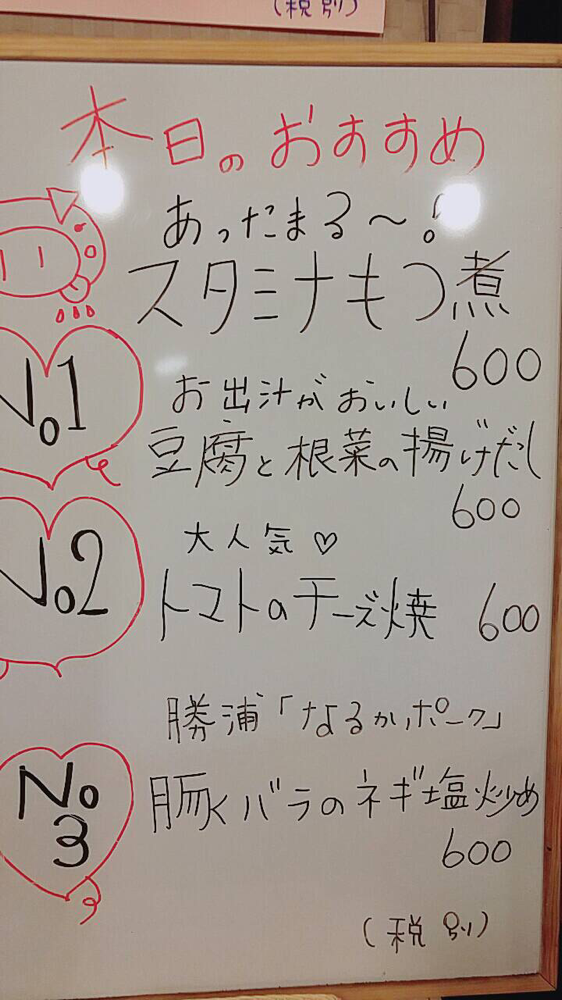 (税別)
本日のおすすめ
あったまる〜!
スタミナもつ煮
600
No1
お出汁がおいしい
豆腐と根菜の揚げだし
600
No2
大人気♡
トマトのチーズ焼
600
勝浦「なるかポーク」
No3
豚バラのネギ塩炒め
600
(税別)